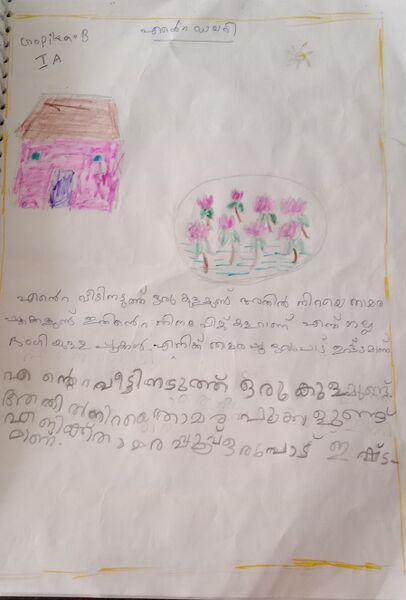 Gopika.B
I A
എന്റെ ഡയറി
എന്റെ വീടിനടുത്ത് ഒരു കുളമുണ്ട് അതിൽ നിറയെ താമര
പൂക്കളുണ്ട് ഇതിന്റെ നിറം പിങ്ക് കളറാണ് എന്ത് നല്ല
ഭംഗിയുള്ള പൂക്കൾ. എനിക്ക് താമരപൂ ഒരുപാട് ഇഷ്ടമാണ്
എന്റെ വീട്ടിനടുത്ത് ഒരു കുളമുണ്ട്.
അതിൽ നിറയെ താമര പൂക്കളുണ്ട്
എനിക്ക് താമര പൂ ഒരുപാട് ഇഷ്ട-
മാണ്.